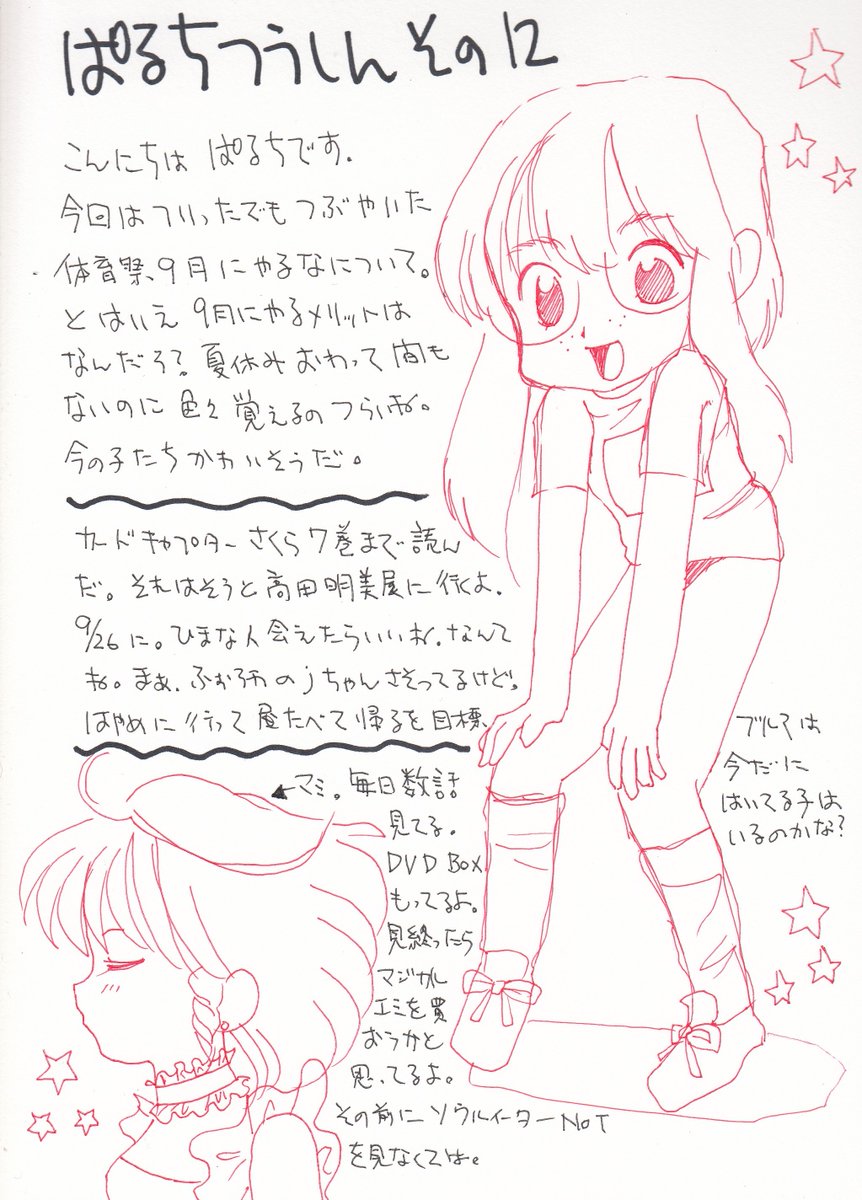 ぱるちつうしんその12
こんにちは ぱるちです.
今回はついったでもつぶやいた
体育祭、9月にやるなについて。
とはいえ 9月にやるメリットは
なんだろ？夏休みおわって間も
ないのに色々覚えるのつらいね。
今の子たちかわいそうだ。
カードキャプターさくら7巻まで読ん
だ。それはそうと高田明美展に行くよ.
9/26に。ひまな人会えたらいいね.なんて
ね。まぁ、ふぉろわのjちゃんさそってるけど。
はやめに行って昼たべて帰るを目標
ブルマは
今だに
はいてる子は
いるのかな？
←マミ。毎日数話
見てる。
DVD BOX
もってるよ。
見終ったら
マジカル
エミを買
おうかと
思ってるよ。
その前にソウルイーターNOT
を見なくては。